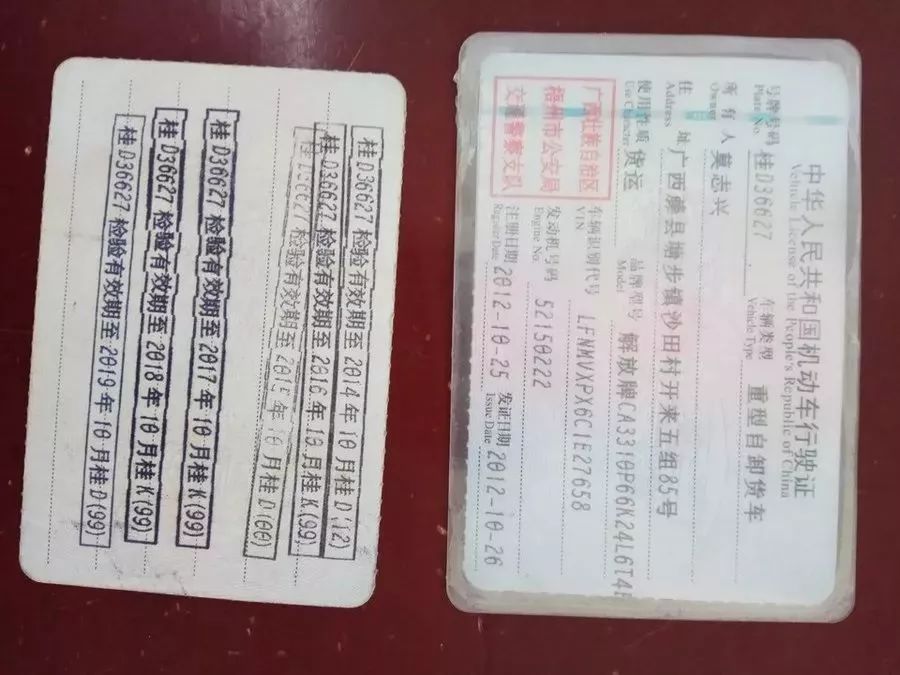 中华人民共和国机动车行驶证
Vehicle License of the People's Republic of China
号牌号码 桂D36627 车辆类型 重型自卸货车
Plate No. Vehicle Type
所有人 莫志兴
Owner
住址 广西藤县塘步镇沙田村开来五组85号
Address
使用性质 货运 品牌型号 解放牌CA3310P66K24L6T4E
Use Character Model
广西壮族自治区
梧州市公安局
交通警察支队
车辆识别代号 LFNMVXPX6C1E27658
VIN
发动机号码 52150222
Engine No.
注册日期 2012-10-25 发证日期 2012-10-26
Register Date Issue Date
桂D36627 检验有效期至2014年10月桂D(12)
桂D36627 检验有效期至2016年10月桂K(99)
桂D36627 检验有效期至2015年10月桂D(00)
桂D36627 检验有效期至2017年10月桂K(99)
桂D36627 检验有效期至2018年10月桂K(99)
桂D36627 检验有效期至2019年10月桂D(99)